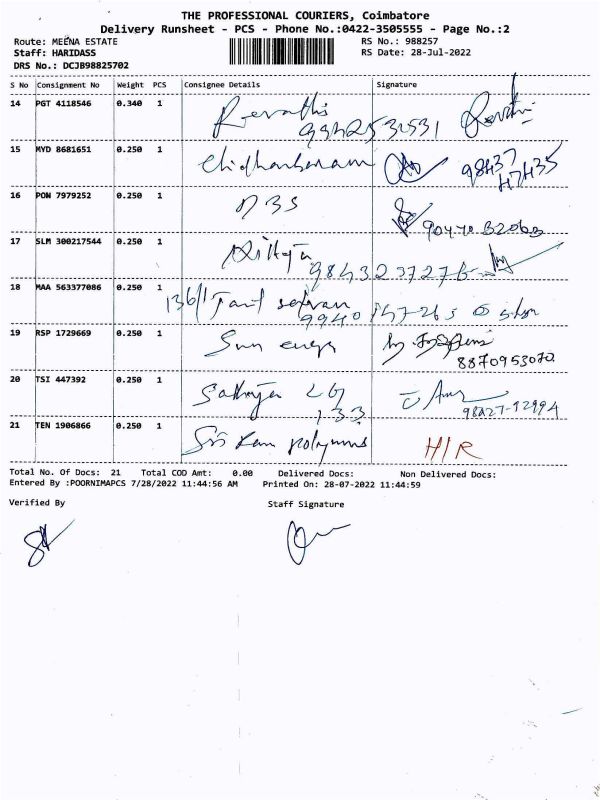 THE PROFESSIONAL COURIERS, Coimbatore
Delivery Runsheet - PCS - Phone No.:0422-3505555 - Page No.:2
Route: MEENA ESTATE RS No.: 988257
Staff: HARIDASS RS Date: 28-Jul-2022
DRS No.: DCJB98825702
S No Consignment No Weight PCS Consignee Details Signature
14 PGT 4118546 0.340 1 Revathi
15 MYD 8681651 0.250 1 Chidhambaram 98437
47435
16 PON 7979252 0.250 1 DBS
90470 32063
17 SLM 300217544 0.250 1 Nithya
9843237276
18 MAA 563377086 0.250 1 136/1
9940
19 RSP 1729669 0.250 1 Sun
8870953072
20 TSI 447392 0.250 1 Sathya LG
133 98427-12994
21 TEN 1906866 0.250 1 Sri Ram polymers H/R
Total No. Of Docs: 21 Total COD Amt: 0.00 Delivered Docs: Non Delivered Docs:
Entered By :POORNIMAPCS 7/28/2022 11:44:56 AM Printed On: 28-07-2022 11:44:59
Verified By Staff Signature